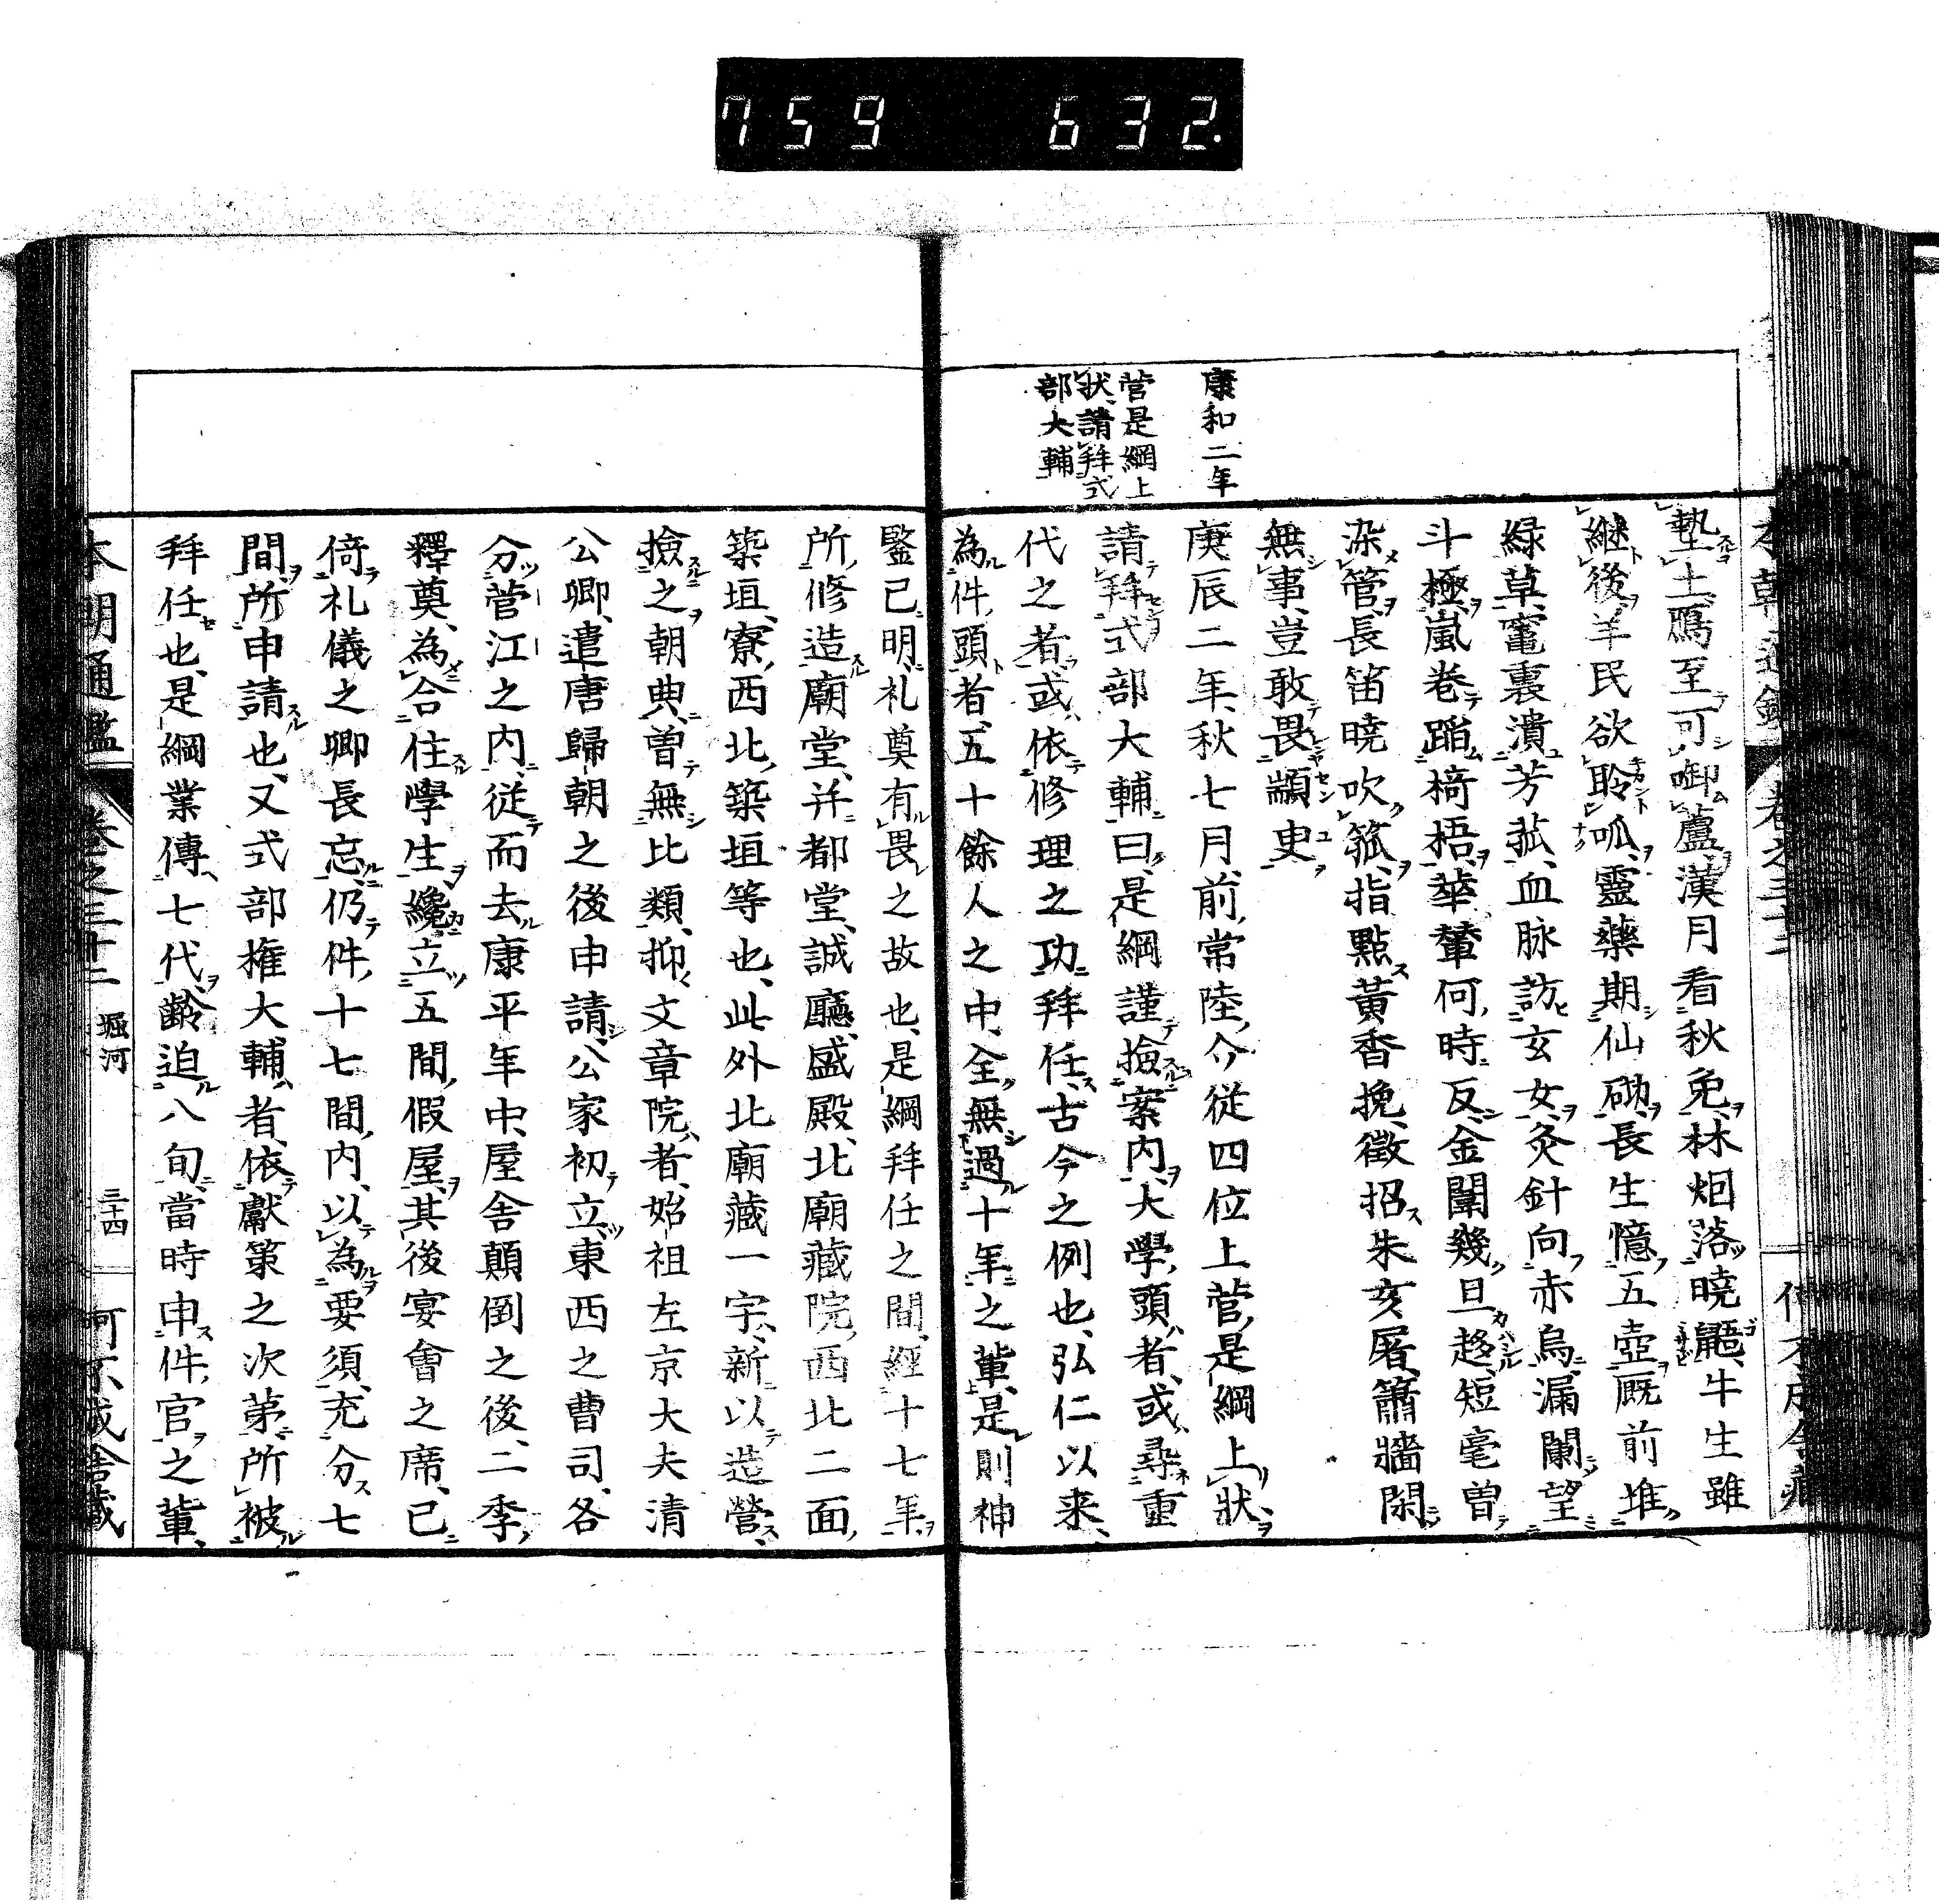 759 632.
康和二年
菅是綱上
状請拜式
部大輔
蟄土鴈至可啣蘆漢月看秋兔林烟落曉鼯牛生雖
継後羊民欲聆呱靈藥期仙砌長生憶五壺厩前堆
緑草竃裏潰芳菰血脉訪玄女灸針向赤烏漏闌望
斗極嵐卷蹈椅梧華輦何時反金闈幾旦趂短毫曽
染管長笛曉吹箛指點黄香挽徴招朱亥屠簫牆閑
無事豈敢畏顓臾
庚辰二年秋七月前常陸介從四位上菅是綱上狀
請拜式部大輔曰是綱謹撿案内大學頭者或尋重
代之者或依修理之功拜任古今之例也弘仁以来
為件頭者五十餘人之中全無過十年之輩是則神
鑒已明礼奠有畏之故也是綱拜任之間經十七年
所修造廟堂并都堂誠廳盛殿北廟藏院西北二面
築垣寮西北築垣等也此外北廟藏一宇新以造營
撿之朝典曽無比類抑文章院者始祖左京大夫清
公卿遣唐歸朝之後申請公家初立東西之曹司各
分菅江之内從而去康平年中屋舎顛倒之後二季
釋奠為合住學生纔立五間假屋其後宴會之席已
倚礼儀之卿長忘仍件十七間内以為要須充分七
間所申請也又式部権大輔者依獻策之次第所被
拜任也是綱業傳七代齡迫八旬當時申件官之輩
本朝通鑑 卷之三十二 堀河 三十四